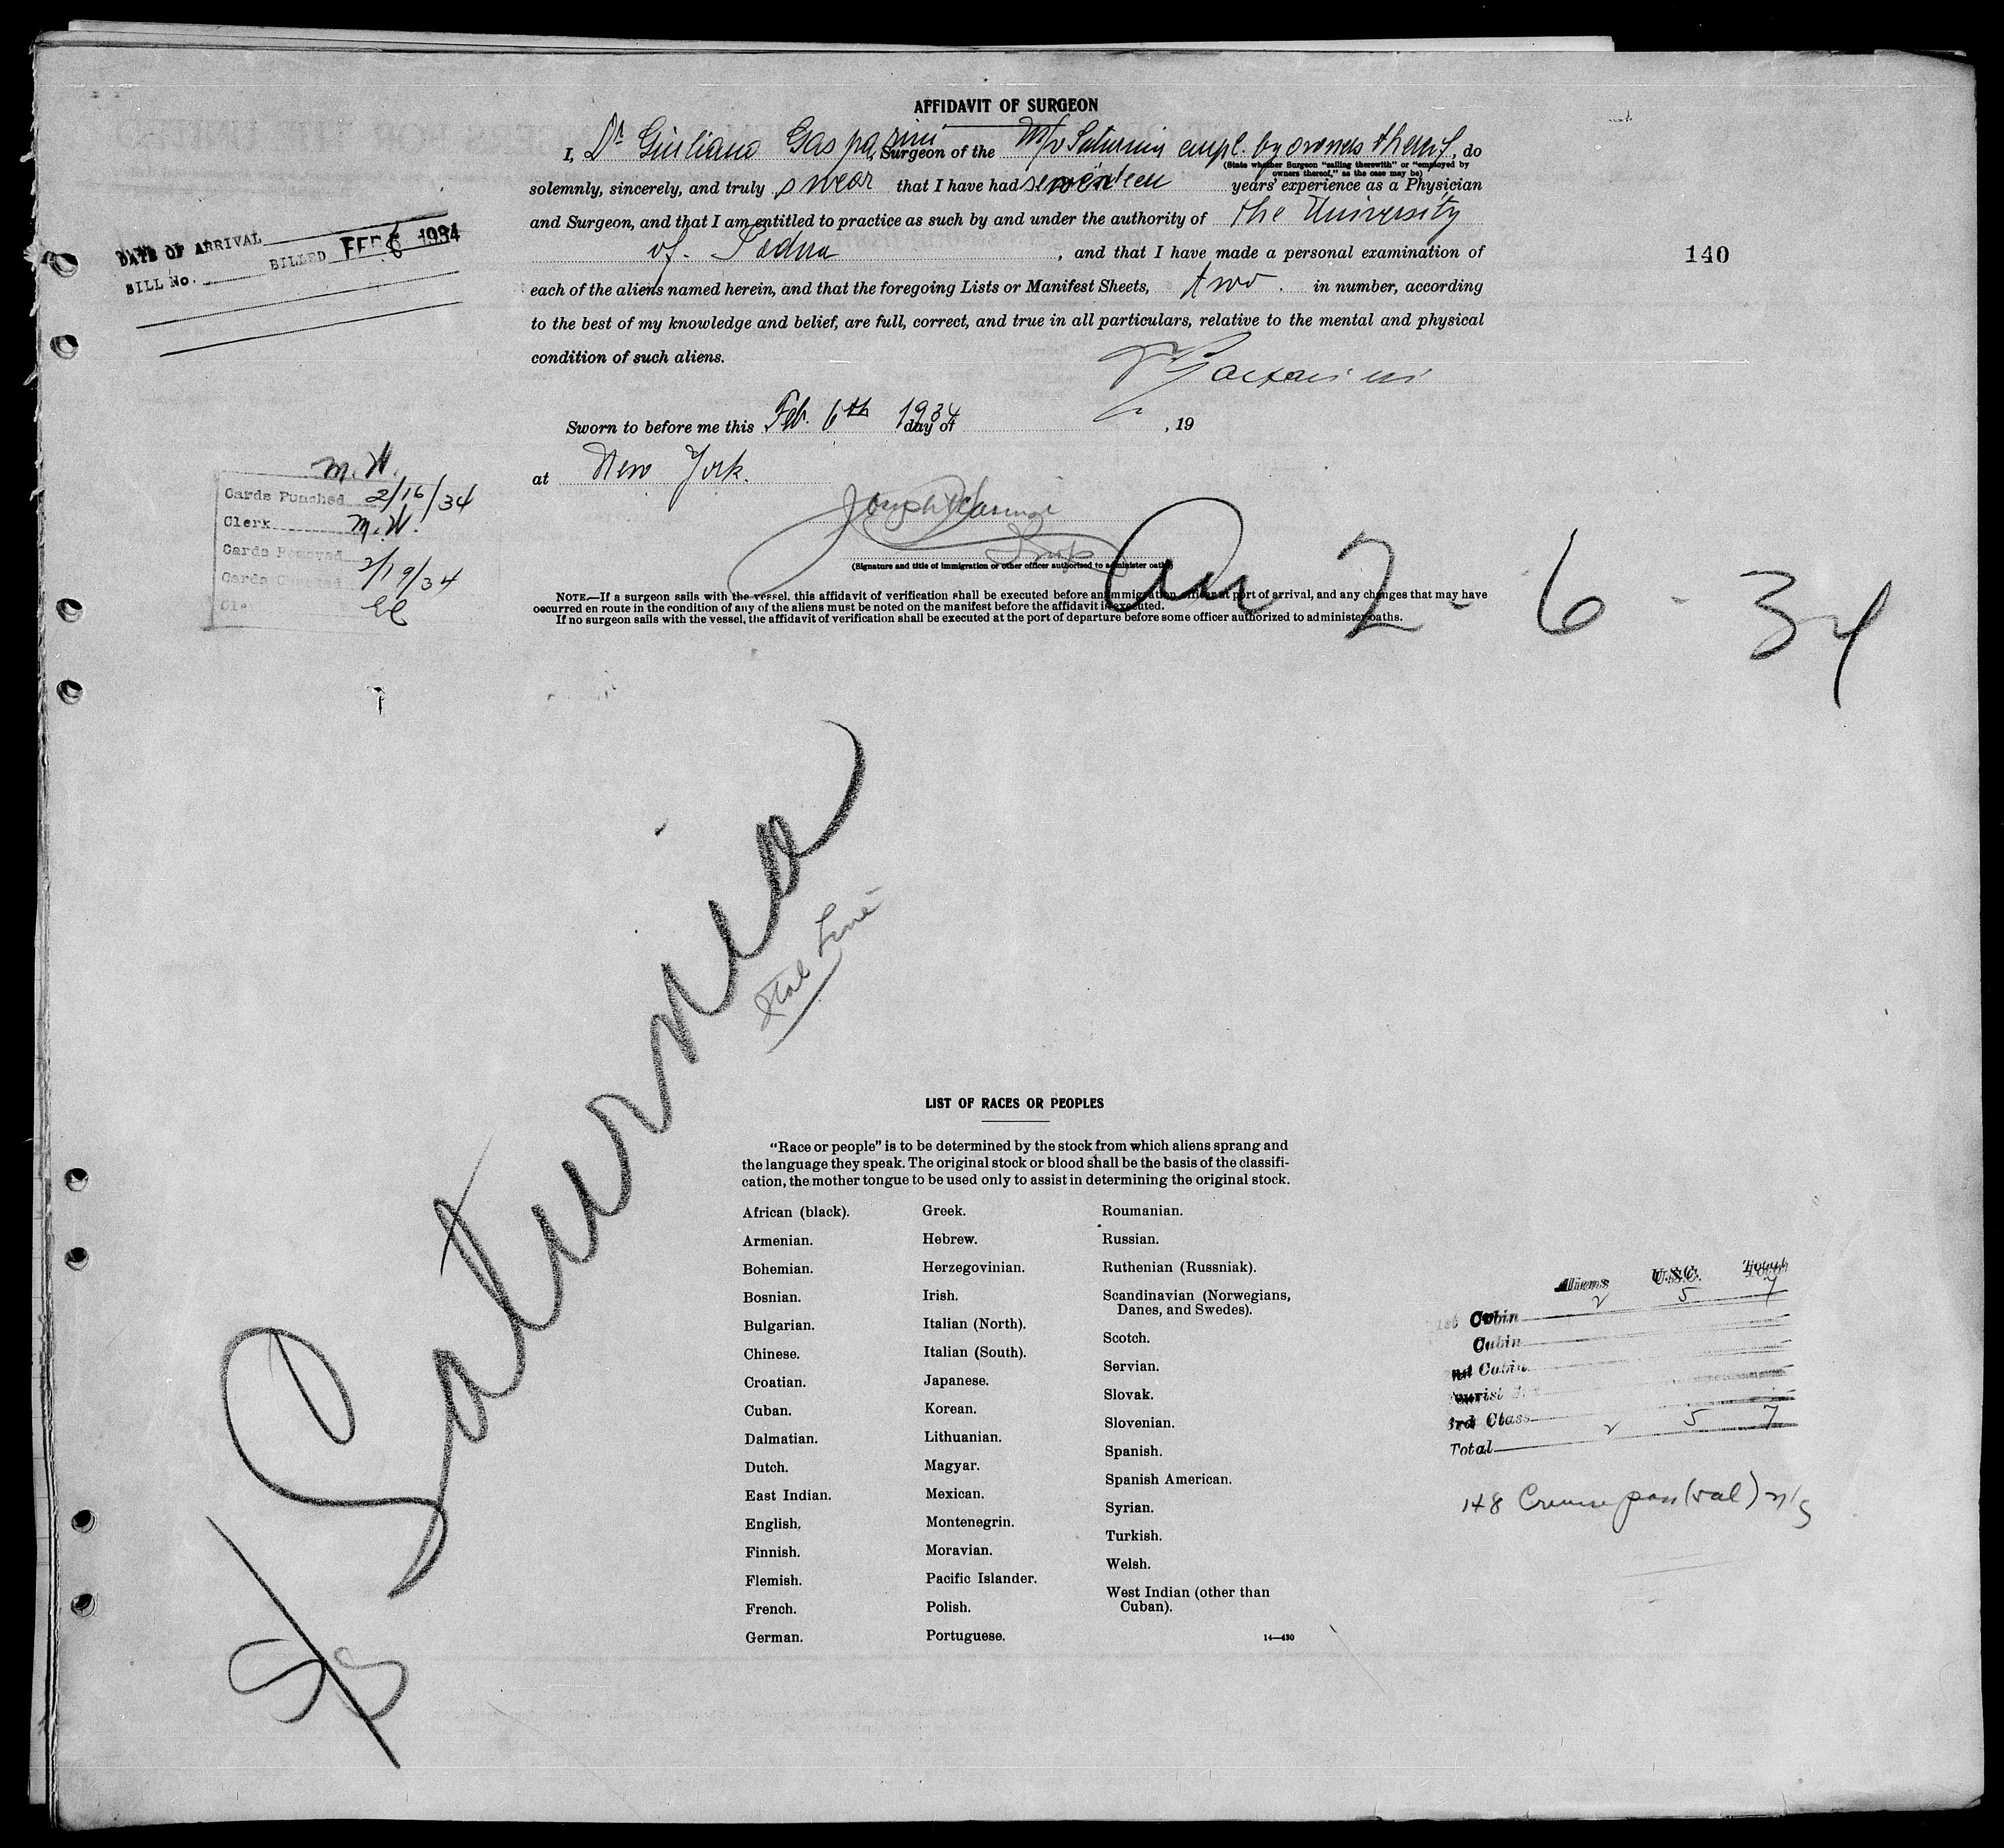 AFFIDAVIT OF SURGEON
I, Dr Giuliano Gasparini, Surgeon of the M/v Saturnia empl. by owners thereof, do
(State whether Surgeon "sailing therewith" or "employed by
owners thereof," as the case may be)
solemnly, sincerely, and truly swear that I have had seventeen years' experience as a Physician
and Surgeon, and that I am entitled to practice as such by and under the authority of the University
of Padua, and that I have made a personal examination of
each of the aliens named herein, and that the foregoing Lists or Manifest Sheets, two in number, according
to the best of my knowledge and belief, are full, correct, and true in all particulars, relative to the mental and physical
condition of such aliens.
Gasparini
Sworn to before me this Feb. 6th 1934 day of , 19
at New York.
Joseph
Insp
(Signature and title of immigration or other officer authorized to administer oath)
NOTE.—If a surgeon sails with the vessel, this affidavit of verification shall be executed before an immigration officer at port of arrival, and any changes that may have
occurred en route in the condition of any of the aliens must be noted on the manifest before the affidavit is executed.
If no surgeon sails with the vessel, the affidavit of verification shall be executed at the port of departure before some officer authorized to administer oaths.
DATE OF ARRIVAL
BILL No. BILLED FEB 6 1934
140
M.W.
Cards Punched 2/16/34
Clerk M.W.
Cards Removed
Cards Checked 2/19/34
2-6-34
Saturnia
Ital Line
LIST OF RACES OR PEOPLES
"Race or people" is to be determined by the stock from which aliens sprang and
the language they speak. The original stock or blood shall be the basis of the classifi-
cation, the mother tongue to be used only to assist in determining the original stock.
African (black).
Armenian.
Bohemian.
Bosnian.
Bulgarian.
Chinese.
Croatian.
Cuban.
Dalmatian.
Dutch.
East Indian.
English.
Finnish.
Flemish.
French.
German.
Greek.
Hebrew.
Herzegovinian.
Irish.
Italian (North).
Italian (South).
Japanese.
Korean.
Lithuanian.
Magyar.
Mexican.
Montenegrin.
Moravian.
Pacific Islander.
Polish.
Portuguese.
Roumanian.
Russian.
Ruthenian (Russniak).
Scandinavian (Norwegians,
Danes, and Swedes).
Scotch.
Servian.
Slovak.
Slovenian.
Spanish.
Spanish American.
Syrian.
Turkish.
Welsh.
West Indian (other than
Cuban).
14—430
Aliens U.S.C. Total
1st Cabin 2 5 7
Cabin
nd Cabin
ourist
3rd Class
Total 2 5 7
148 Cruise pass